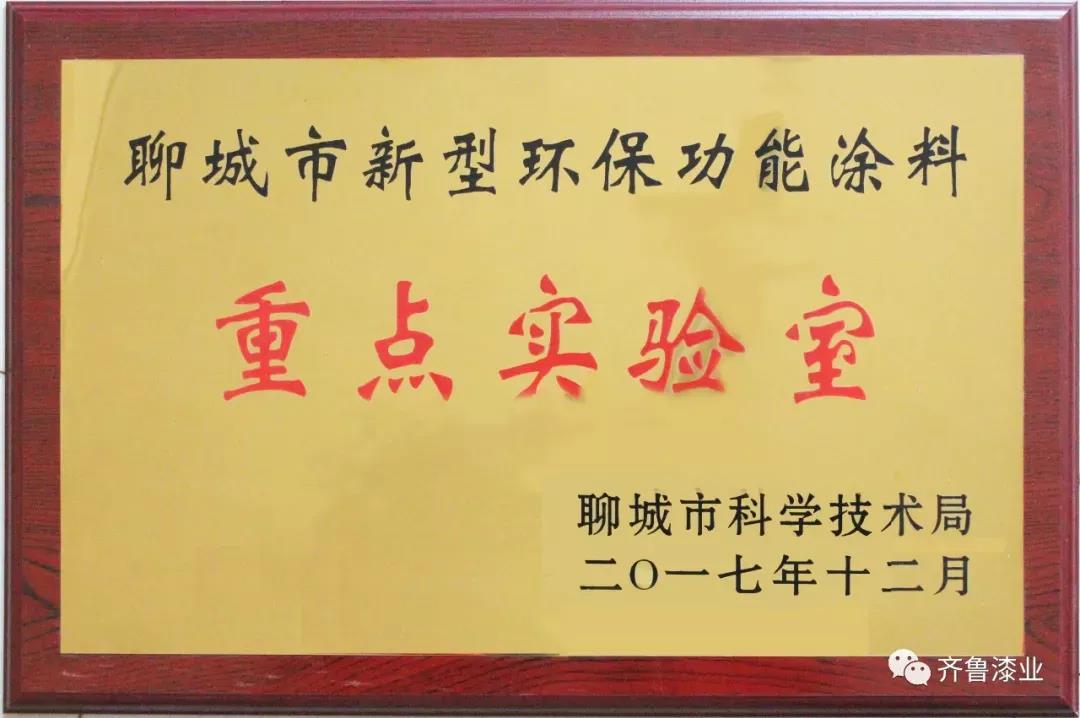 聊城市新型环保功能涂料
重点实验室
聊城市科学技术局
二〇一七年十二月
齐鲁漆业